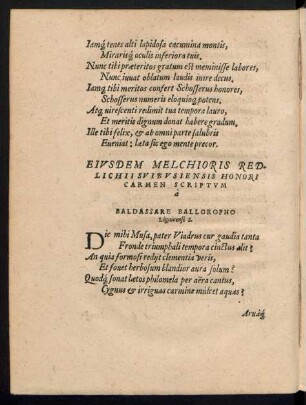 Iamq́; tenes alti lapidosa cacumina montis,
Mirarisq́; oculis inferiora tuis.
Nunc tibi præteritos gratum est meminisse labores,
Nunc iuuat oblatum laudis inire decus.
Iamq́; tibi meritos confert Schosserus honores,
Schosserus numeris eloquioq́; potens.
Atq́; uirescenti redimit tua tempora lauro,
Et meritis dignum donat habere gradum,
Ille tibi felix, & ab omni parte salubris
Eueniat: læta sic ego mente precor.
EIVSDEM MELCHIORIS RED-
LICHII SVIBVSIENSIS HONORI
CARMEN SCRIPTVM
à
BALDASSARE BALLOROPHO
Lignicensi S.
Dic mihi Musa, pater Viadrus cur gaudia tanta
Fronde triumphali tempora cinctus alit?
An quia formosi redijt clementia Veris,
Et fouet herbosum blandior aura solum?
Quodq́; sonat lætos philomela per aëra cantus,
Cygnus & irriguas carmine mulcet aquas?
Aruaq́;